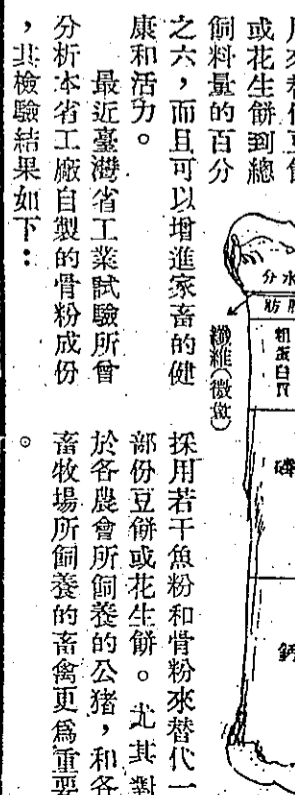 或花生餅到總
飼料量的百分
之六，而且可以增進家畜的健
康和活力。
最近臺灣省工業試驗所曾
分析本省工廠自製的骨粉成份
，其檢驗結果如下：
分水
肪脂
粗蛋白質
磷
鈣
纖維(微量)
採用若干魚粉和骨粉來替代一
部份豆餅或花生餅。尤其對
於各農會所飼養的公猪，和各
畜牧場所飼養的畜禽更爲重要
。